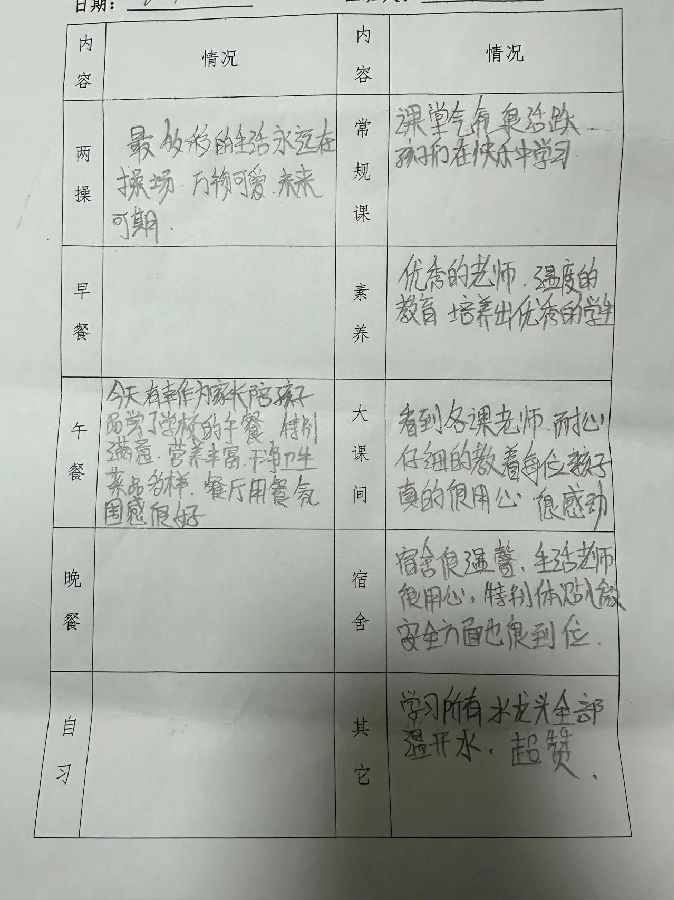 日期：
内容 情况 内容 情况
两操
最放松的生活永远在
操场.万物可爱.未来
可期.
常规课
课堂气氛很活跃.
孩子们在快乐中学习.
早餐
素养
优秀的老师.温度的
教育 培养出优秀的学生
午餐
今天有幸作为家长陪孩子
品尝了学校的午餐 特别
满意.营养丰富.干净卫生
菜品多样.餐厅用餐氛
围感很好
大课间
看到各课老师.耐心
仔细的教着每位孩子
真的很用心 很感动
晚餐
宿舍
宿舍很温馨、生活老师
很用心，特别体贴入微
安全方面也很到位.
自习
其它
学习所有水龙头全部
温开水.超赞、